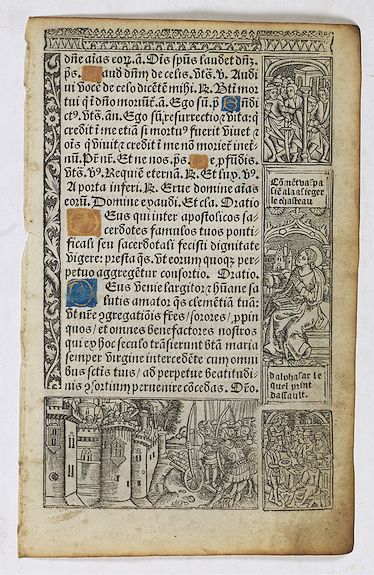 dñe aias eorȝ. a. Ois spũs laudet dñȝ.
p̃s. Laud dñm de celis. v̉s. V. Audi
ui vocẽ de celo dicẽtẽ mihi. R. Bti mor
tui q̃ i dño moriũt̃. a. Ego sũ. p̃ Bñdi
ct9. v̉s. añ. Ego sũ resurrectio ⁊ vita: q̃
credit i me etiã si mortu9 fuerit viuet ⁊
oĩs q̃ viuit ⁊ credit i me nõ moriet̃ inet̃
nũ. Pr̃ nr̃. Et ne nos. p̃s. De ꝓfũdis.
v̉s. V. Requiẽ eternã. R. Et lux. v̉.
A porta inferi. R. Erue domine aĩas
eorũ. Domine exaudi. Et cla. Oratio
Deus qui inter apostolicos sa
cerdotes famulos tuos ponti
ficali seu sacerdotali fecisti dignitate
vigere: presta q̃s. vt eorum quoqȝ per
petuo aggregẽtur consortio. Oratio.
Deus venie largitor ⁊ hũane sa
lutis amator q̃s clemẽtiã tuã:
vt nr̃e ɔgregationis fr̃es / sorores / ꝓpin
quos / et omnes benefactores nostros
qui ex hoc seculo trãsierunt btã maria
semper virgine intercedẽte cum omni
bus sctĩs tuis / ad perpetue beatitudi
nis ɔsortium peruenire cõcedas. Dr̃o.
Cõment
sie ala assieger
le chasteau
dalphasar le
quel print
dassault.